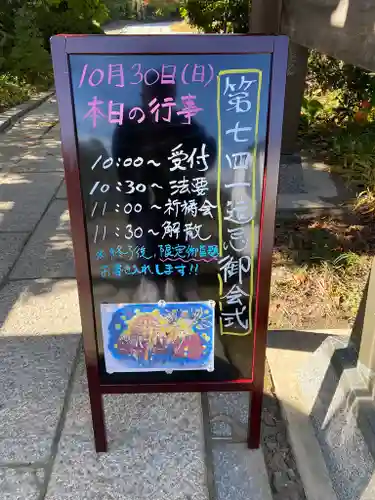 10月30日(日)
本日の行事
第七四一遠忌御会式
10:00～受付
10:30～法要
11:00～祈祷会
11:30～解散
※終了後、限定御首題
お書き入れします!!